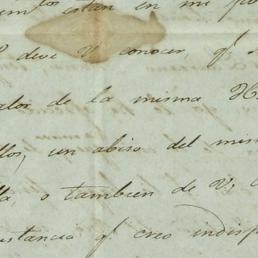 están en mi po
deve V conocer qe
de la misma H
llos, un abiso del mis
lla, o tambien de V.
stancia qe creo indisp